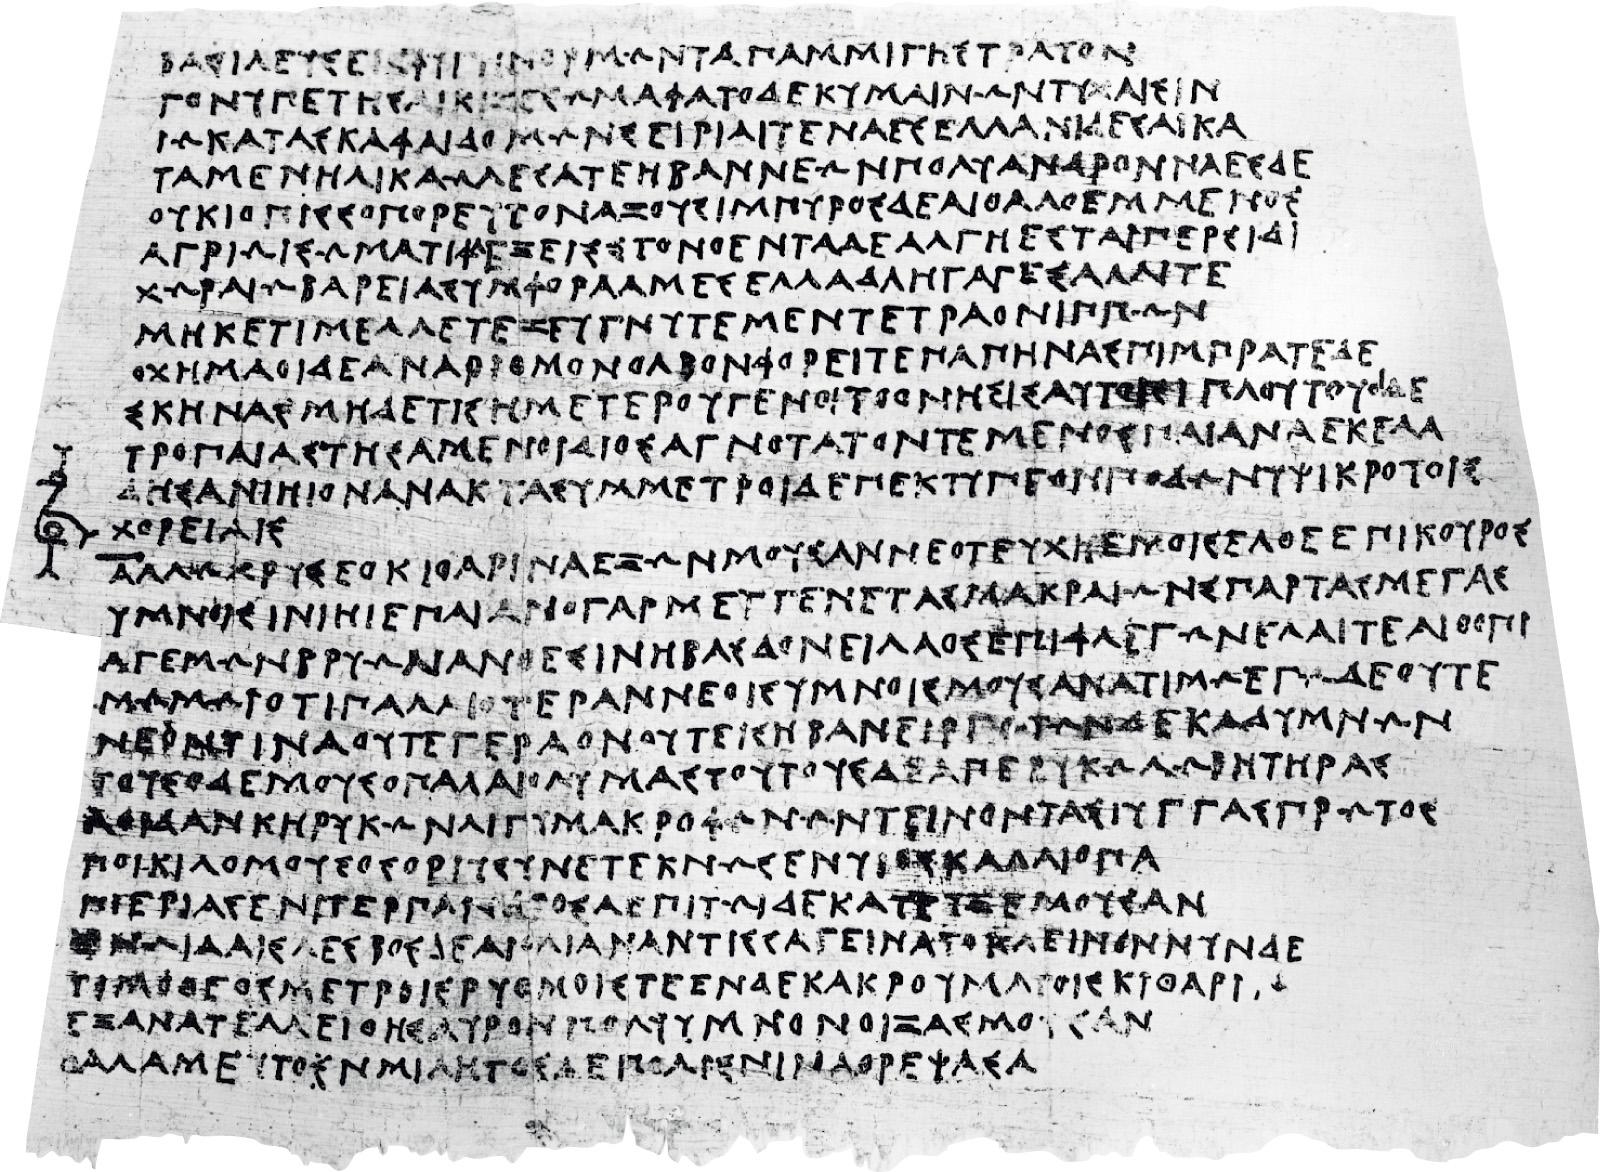 ΒΑΣΙΛΕΥΣΕΙΣΦΥΓΗΝΟΡΜΩΝΤΑΠΑΜΜΙΓΗΣΤΡΑΤΟΝ
ΓΟΝΥΠΕΤΗΣΑΙΚΙΖΕΣΩΜΑΦΑΤΟΔΕΚΥΜΑΙΝΩΝΤΥΧΑΙΣΙΝ
ΙΩΚΑΤΑΣΚΑΦΑΙΔΟΜΩΝΣΕΙΡΙΑΙΤΕΝΑΕΣΕΛΛΑΝΙΔΕΣΑΙΚΑ
ΤΑΜΕΝΗΛΙΚΑΩΛΕΣΑΤΕΗΒΑΝΝΕΩΝΠΟΛΥΑΝΔΡΟΝΝΑΕΣΔΕ
ΟΥΚΙΟΠΙΣΣΟΠΟΡΕΥΤΟΝΑΞΟΥΣΙΜΠΥΡΟΣΔΕΑΙΘΑΛΟΕΜΜΕΝΟΣ
ΑΓΡΙΩΙΣΩΜΑΤΙΦΛΕΞΕΙΣΤΟΝΟΕΝΤΑΔΕΑΛΓΗΕΣΤΑΙΠΕΡΣΙΔΙ
ΧΩΡΑΙΩΒΑΡΕΙΑΣΥΜΦΟΡΑΑΜΕΣΕΛΛΑΔΑΗΓΑΓΕΣΑΛΛΙΤΕ
ΜΗΚΕΤΙΜΕΛΛΕΤΕΖΕΥΓΝΥΤΕΜΕΝΤΕΤΡΑΟΝΙΠΠΩΝ
ΟΧΗΜΑΟΙΔΕΑΝΑΡΙΘΜΟΝΟΛΒΟΝΦΟΡΕΙΤΕΠΑΠΗΝΑΣΠΙΜΠΡΑΤΕΔΕ
ΣΚΗΝΑΣΜΗΔΕΤΙΣΗΜΕΤΕΡΟΥΓΕΝΟΙΤΟΟΝΗΣΙΣΑΥΤΟΙΣΙΠΛΟΥΤΟΥΟΙΔΕ
ΤΡΟΠΑΙΑΣΤΗΣΑΜΕΝΟΙΔΙΟΣΑΓΝΟΤΑΤΟΝΤΕΜΕΝΟΣΠΑΙΑΝΑΕΚΕΛΑ
ΔΗΣΑΝΙΗΙΟΝΑΝΑΚΤΑΣΥΜΜΕΤΡΟΙΔΕΠΕΚΤΥΠΕΟΝΠΟΔΩΝΥΨΙΚΡΟΤΟΙΣ
ΧΟΡΕΙΑΙΣ
ΑΛΛΩΧΡΥΣΕΟΚΙΘΑΡΙΝΑΕΞΩΝΜΟΥΣΑΝΝΕΟΤΕΥΧΗΕΜΟΙΣΕΛΘΕΕΠΙΚΟΥΡΟΣ
ΥΜΝΟΙΣΙΝΙΗΙΕΠΑΙΑΝΟΓΑΡΜΕΥΓΕΝΕΤΑΣΜΑΚΡΑΙΩΝΣΠΑΡΤΑΣΜΕΓΑΣ
ΑΓΕΜΩΝΒΡΥΩΝΑΝΘΕΣΙΝΗΒΑΣΔΟΝΕΙΛΑΟΣΕΠΙΦΛΕΓΩΝΕΛΑΙΤΕΑΙΘΟΠΙ
ΜΩΜΩΙΟΤΙΠΑΛΑΙΟΤΕΡΑΝΝΕΟΙΣΥΜΝΟΙΣΜΟΥΣΑΝΑΤΙΜΩΕΓΩΔΕΟΥΤΕ
ΝΕΟΝΤΙΝΑΟΥΤΕΓΕΡΑΟΝΟΥΤΕΙΣΗΒΑΝΕΙΡΓΩΤΩΝΔΕΚΑΣΥΜΝΩΝ
ΤΟΥΣΔΕΜΟΥΣΟΠΑΛΑΙΟΛΥΜΑΣΤΟΥΤΟΥΣΔΕΑΠΕΡΥΚΩΛΩΒΗΤΗΡΑΣ
ΑΟΙΔΑΝΚΗΡΥΚΩΝΛΙΓΥΜΑΚΡΟΦΩΝΩΝΤΕΙΝΟΝΤΑΣΙΥΓΓΑΣΠΡΩΤΟΣ
ΠΟΙΚΙΛΟΜΟΥΣΟΣΟΡΙΥΣΥΝΕΤΕΚΝΩΣΕΝΥΙΟΣΚΑΛΛΙΟΠΑ
ΠΙΕΡΙΑΣΕΝΙΤΕΡΠΑΝΔΡΟΣΔΕΠΙΤΩΙΔΕΚΑΤΕΥΞΕΜΟΥΣΑΝ
ΕΝΩΙΔΑΙΣΛΕΣΒΟΣΔΕΑΙΟΛΙΑΝΑΝΤΙΣΣΑΓΕΙΝΑΤΟΚΛΕΙΝΟΝΝΥΝΔΕ
ΤΙΜΟΘΕΟΣΜΕΤΡΟΙΣΡΥΘΜΟΙΣΤΕΕΝΔΕΚΑΚΡΟΥΜΑΤΟΙΣΚΙΘΑΡΙ
ΕΞΑΝΑΤΕΛΛΕΙΘΗΣΑΥΡΟΝΠΟΛΥΥΜΝΟΝΟΙΞΑΣΜΟΥΣΑΝ
ΘΑΛΑΜΕΥΤΟΣΝΜΙΛΗΤΟΣΔΕΠΟΛΙΣΝΙΝΑΘΡΕΨΑΣΑ